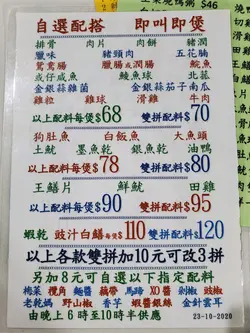 自選配搭　即叫即煲
排骨　肉片　肉餅　豬潤
臘味　豬頭肉　五花腩
鴛鴦腸　臘腸或潤腸　鯇魚
或仔咸魚　鯪魚球　北菇
金銀蒜雞菌　金銀蒜茄子南瓜
雞粒　雞球　滑雞　牛肉
以上配料每煲$68　雙拼配料$70
狗肚魚　白飯魚　大魚頭
土魷　墨魚乾　銀魚乾　油鴨
以上配料每煲$78　雙拼配料$80
王鱔片　鮮魷　田雞
以上配料每煲$90　雙拼配料$95
蝦　豉汁白鱔每煲$110　雙拼配料$120
以上各款雙拼加10元可改3拼
另加8元可自選以下指定配料
梅菜　欖角　麵醬　藕帶　馬蹄　XO醬　剁椒　豉椒
老乾媽　野山椒　香芋　蝦醬　銀絲　金針雲耳
由晚上6時至10時半供應
23-10-2020